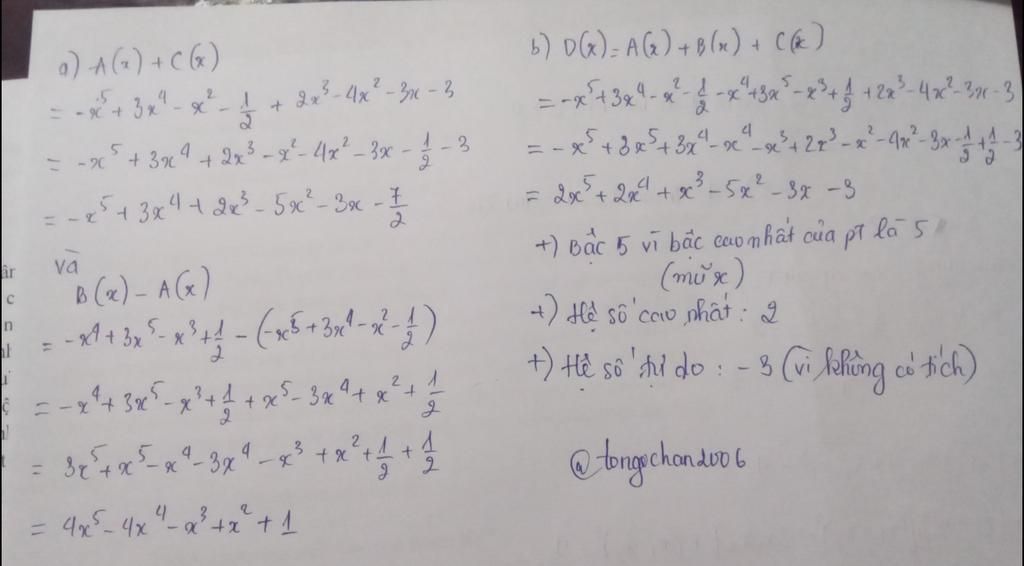 a) A(x) + C(x)
= -x⁵ + 3x⁴ - x² - 1/2 + 2x³ - 4x² - 3x - 3
= -x⁵ + 3x⁴ + 2x³ - x² - 4x² - 3x - 1/2 - 3
= -x⁵ + 3x⁴ + 2x³ - 5x² - 3x - 7/2
và
B(x) - A(x)
= -x⁴ + 3x⁵ - x³ + 1/2 - (-x⁵ + 3x⁴ - x² - 1/2)
= -x⁴ + 3x⁵ - x³ + 1/2 + x⁵ - 3x⁴ + x² + 1/2
= 3x⁵ + x⁵ - x⁴ - 3x⁴ - x³ + x² + 1/2 + 1/2
= 4x⁵ - 4x⁴ - x³ + x² + 1
b) D(x) = A(x) + B(x) + C(x)
= -x⁵ + 3x⁴ - x² - 1/2 - x⁴ + 3x⁵ - x³ + 1/2 + 2x³ - 4x² - 3x - 3
= -x⁵ + 3x⁵ + 3x⁴ - x⁴ - x³ + 2x³ - x² - 4x² - 3x - 1/2 + 1/2 - 3
= 2x⁵ + 2x⁴ + x³ - 5x² - 3x - 3
+) Bậc 5 vì bậc cao nhất của pt là 5
(mũ x)
+) Hệ số cao nhất : 2
+) Hệ số tự do : -3 (vì không có tích)
@tongochan2006
âr
c
n